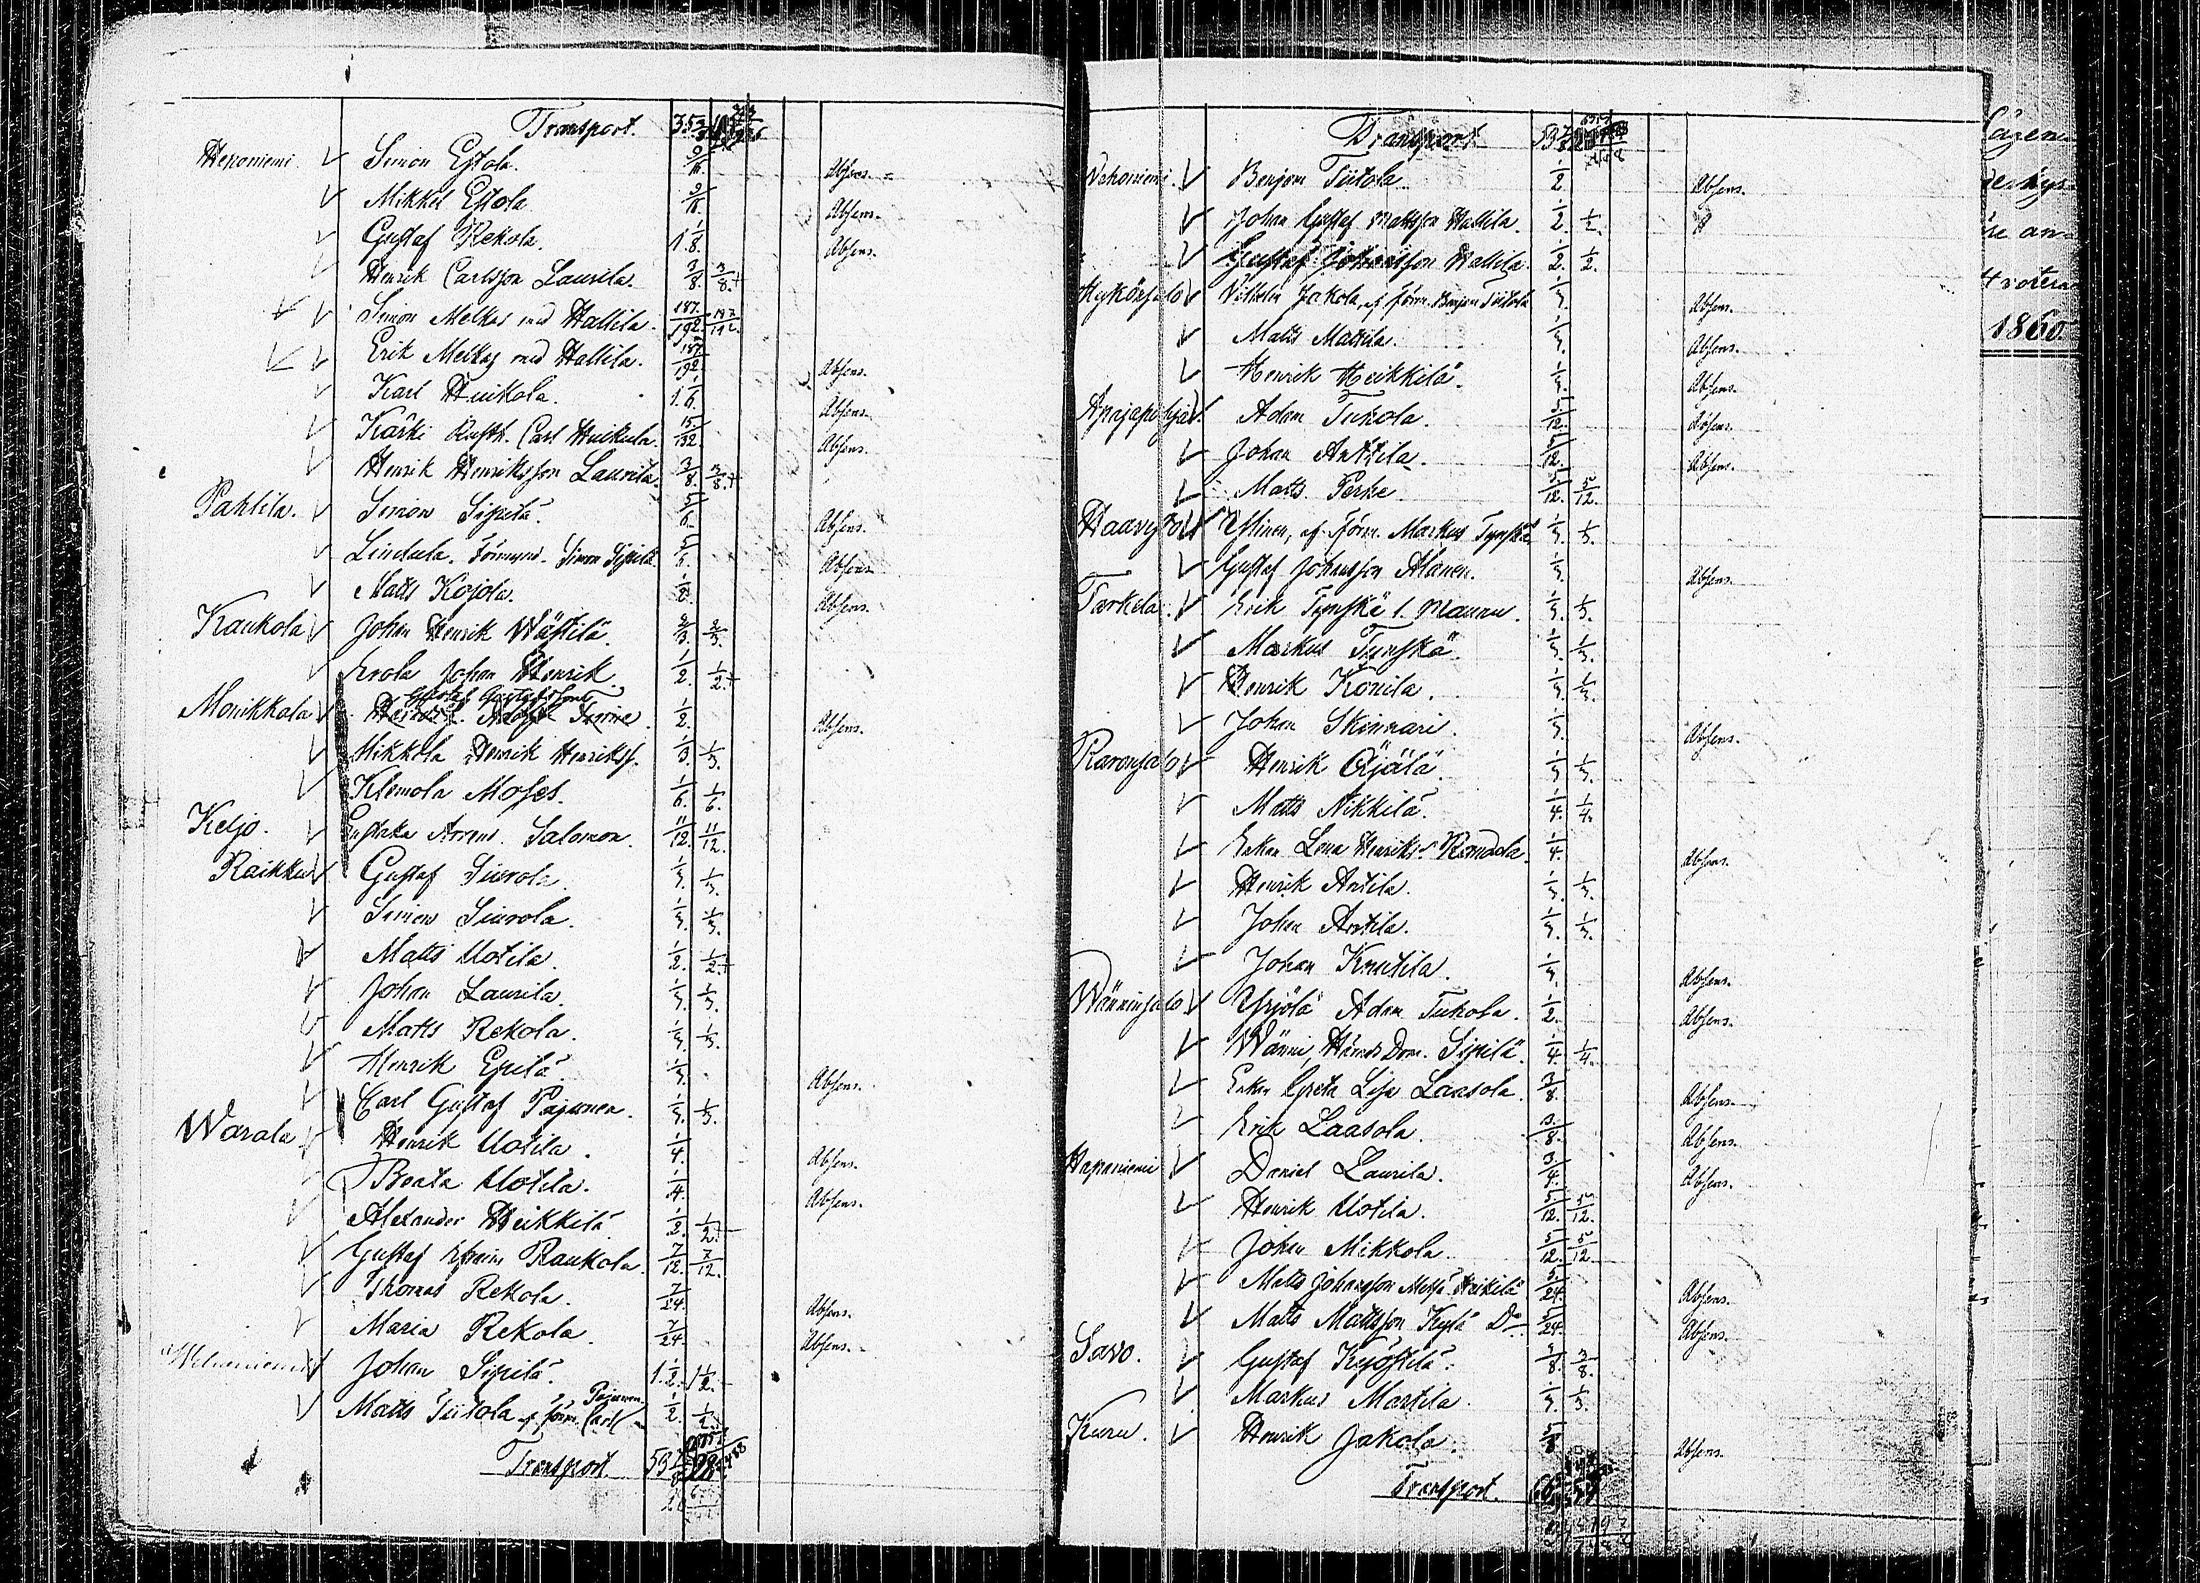 Transport. 35
Simon Estola. 9/16. Absens.
Mikkel Estola 9/16. Absens.
Gustaf Rekola. 1 1/8. Absens.
Henrik Carlsson Laurila. 3/8. 3/8.+
Simon Melkas med Hallila. 187/192. 187/192.
Erik Melkas med Hallila. 187/192. Absens.
Karl Huikola. 1 1/6. Absens.
Kärki Rusth. Carl Huikula. 15/132. Absens.
Henrik Henriksson Laurila. 3/8. 3/8.+
Pahlila. Simon Sipilä. 5/6. Absens.
Lindula. Förmynd. Simon Sipilä 5/6. Absens
Matts Kojola. 1/2. Absens.
Kaukola Johan Henrik Wästilä. 2/3. 2/3.
Erola Johan Henrik 1/2. 1/2.+
Gustaf Gustafsson
Monikkala 1/2. Absens.
Mikkola Henrik Henrikss. 1/3. 1/3.
Klemola Moses. 1/6. 1/6.
Keljo. Arrend. Salomon. 11/12. 11/12.
Raikku Gustaf Siurola 1/3. 1/3.
Simon Siurola. 1/3. 1/3.
Matts Uotila. 1/2. 1/2.+
Johan Laurila. 1/3. 1/3.
Matts Rekola. 1/3. 1/3.
Henrik Epilä. 1/3. Absens.
Carl Gustaf Pajunen. 1/3. 1/3.
Warala Henrik Uotila. 1/4. Absens.
Beata Uotila. 1/4. Absens.
Alexander Heikkilä 1/2. 1/2.+
Gustaf Efraim Raukola. 7/12. 7/12.
Thomas Rekola. 7/24. Absens.
Maria Rekola. 7/24. Absens.
Johan Sipilä. 1 1/2. 1 1/2.
Pajunen
Matts Tiitola af förm. Carl 1/2. 1/2.
Transport 53 7/8
Transport 53 7/8
Benjam Tiitola. 1/2 Absens.
Johan Gustaf Mattsson Hallila. 1/2. 1/2.
Gustaf Johansson Hallila. 1/2. 1/2.
Wilhelm Jakola, af förm. Benjam Tiitola 1/3. Absens.
Matts Mattila. 1/3. Absens.
Henrik Heikkilä. 1/3. Absens.
Adam Tukola. 5/12. Absens.
Johan Anttila. 5/12. Absens.
Matts Perke. 5/12. 5/12.
af förm. Markus Tynskä 1/3. 1/3.
Gustaf Johansson Alanen. 1/3. Absens.
Tarkela. Erik Tynskä l. Maunu. 1/3. 1/3.
Markus Tynskä. 1/3. 1/3.
Henrik Konila. 1/3. 1/3.
Johan Skinnari. 1/3. Absens.
Henrik Äijälä. 1/3 1/3.
Matts Nikkilä. 1/4. 1/4.
Enkan Lena Henriksd. 1/4. Absens.
Henrik Antila. 1/3. 1/3.
Johan Antila. 1/3. 1/3.
Johan Knutila. 1/3. Absens.
Wänninsalo Yrjölä Adam Tukola. 1/2. Absens.
Wänni, Härads Dom. Sipilä. 1/4. 1/4.
Enkan Greta Lisa Laasola. 3/8. Absens.
Erik Laasola. 3/8. Absens.
Haponiemi Daniel Laurila. 3/4. Absens.
Henrik Uotila. 5/12. 5/12.
Johan Mikkola. 5/12. 5/12.
Matts Johansson Metsä Heikilä 5/24. Absens.
Matts Mattsson Kylä Do 5/24. Absens.
Savo. Gustaf Kyöstilä. 3/8. 3/8.
Markus Martila. 1/3. 1/3.
Kuru. Henrik Jakola. 5/8 Absens.
Transport.
1860.